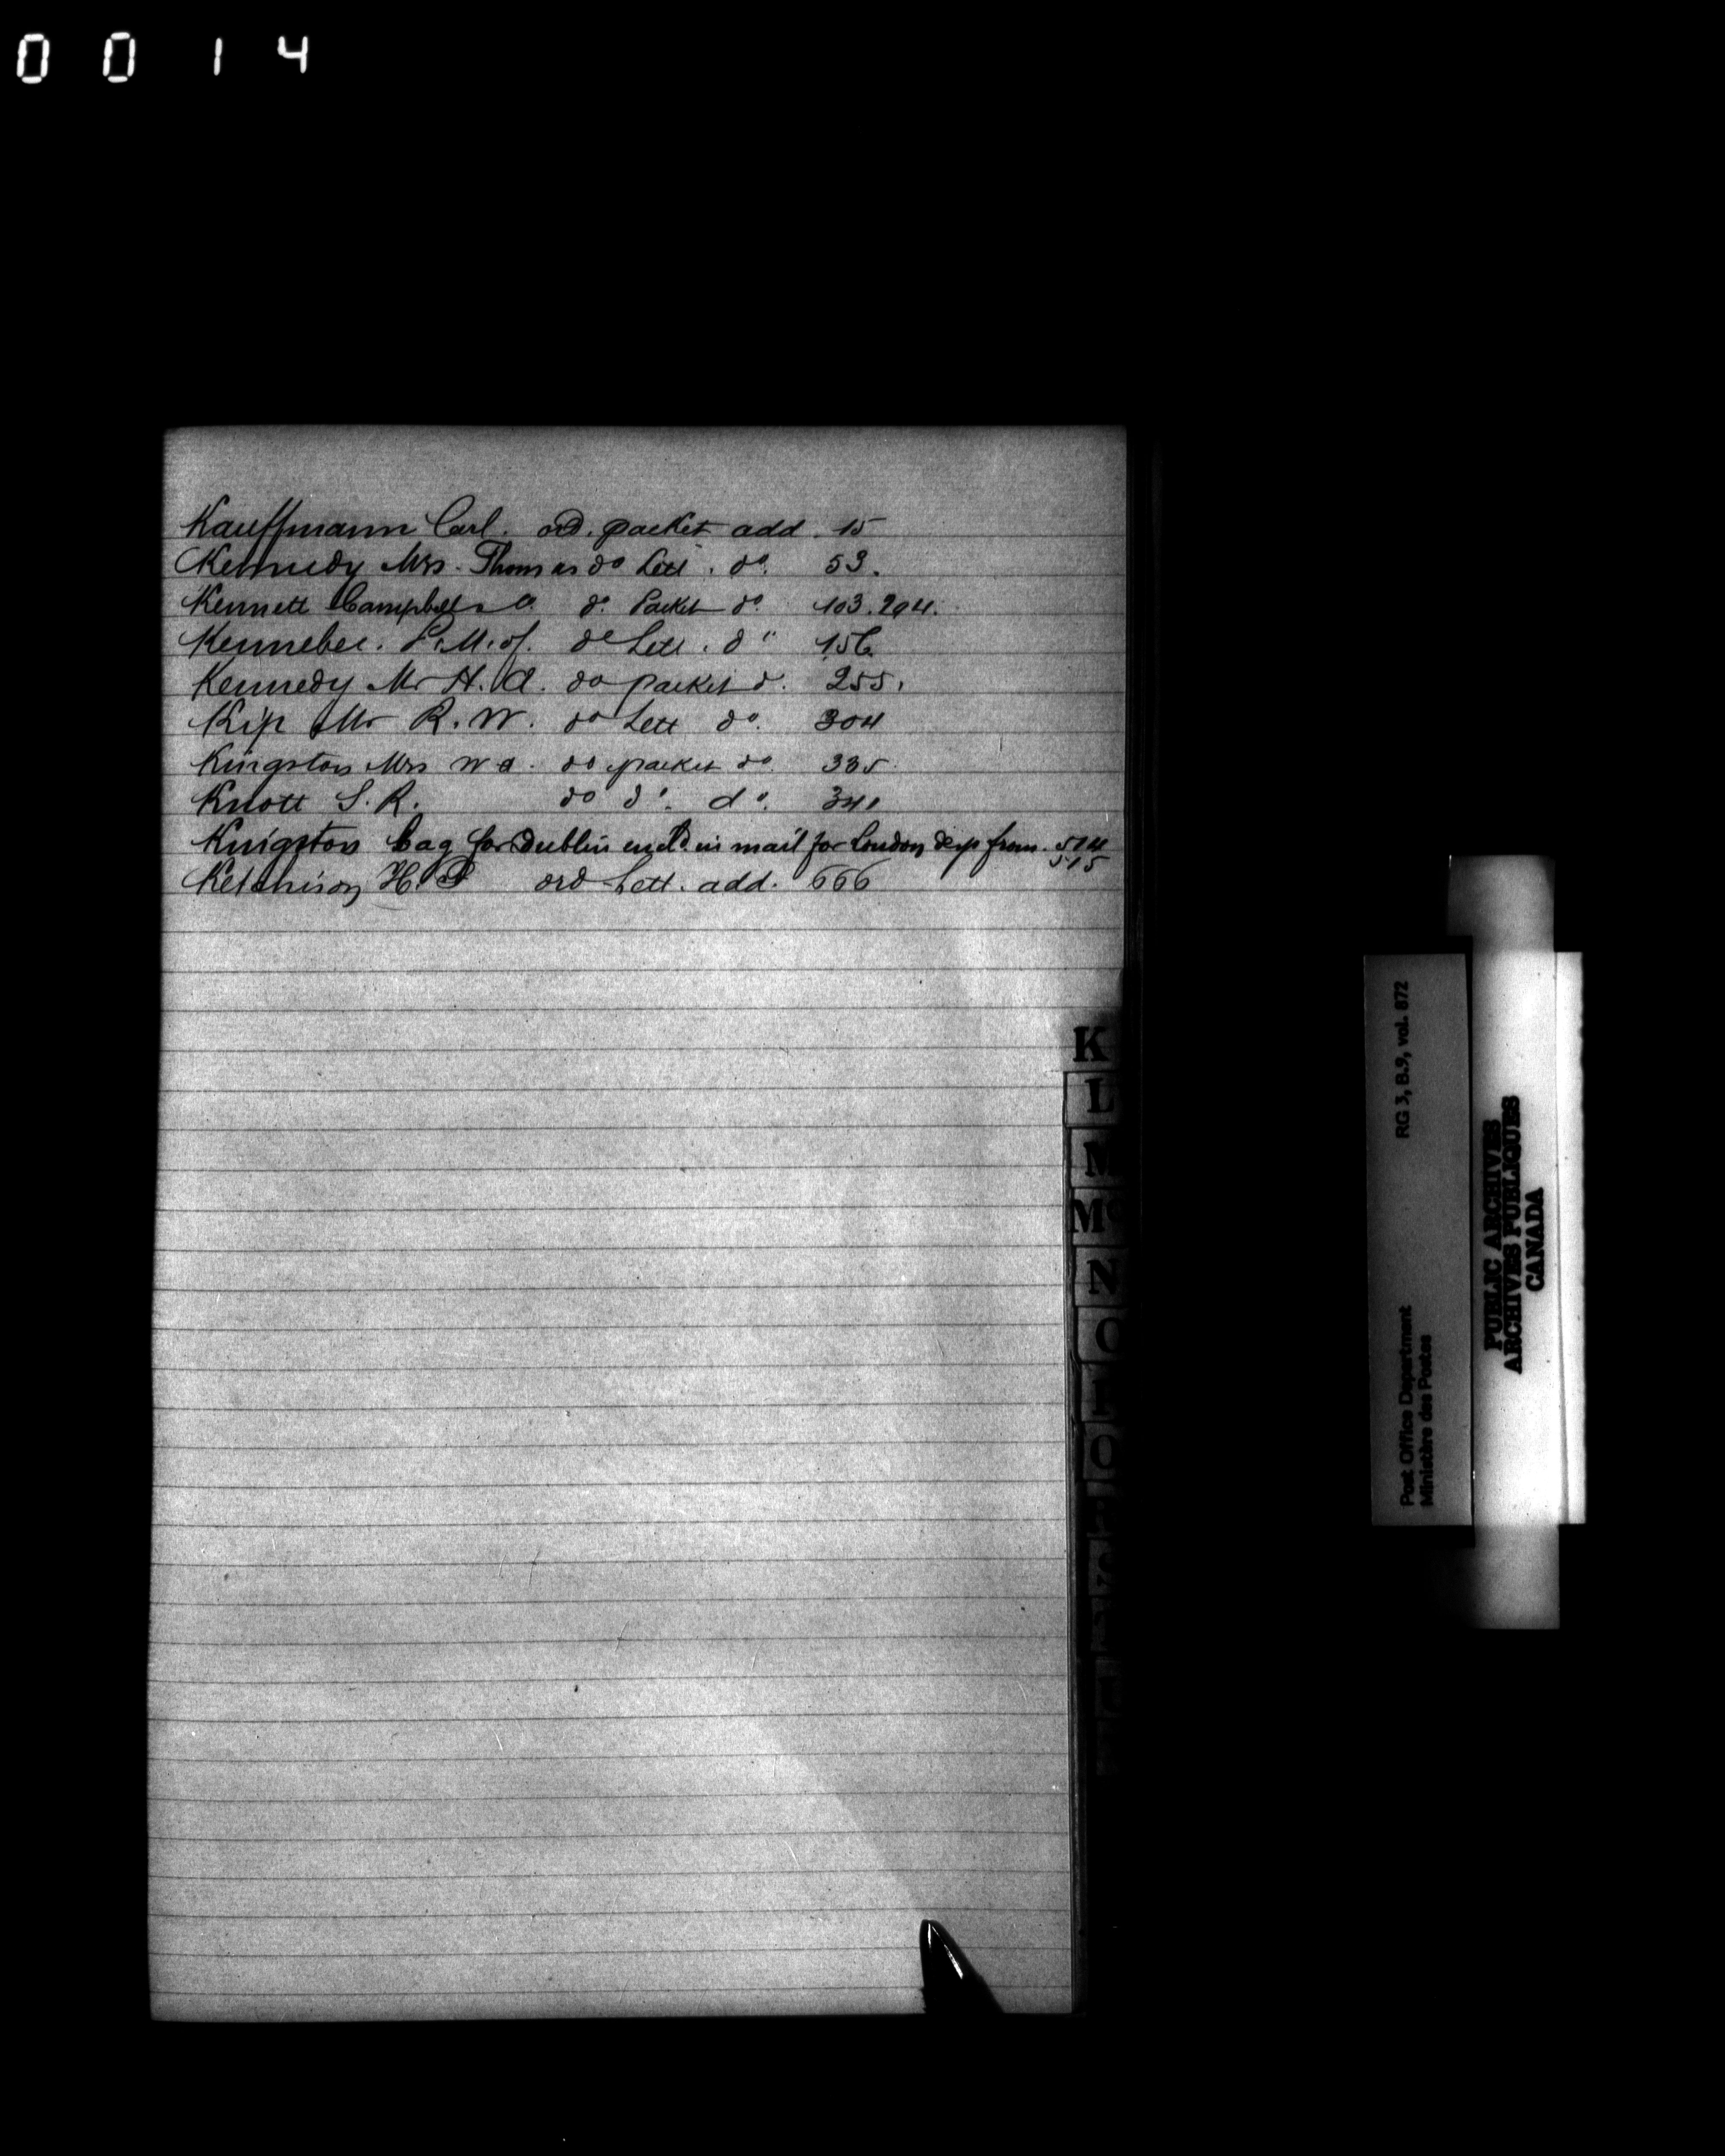 0014
Kauffmann Carl. ord. packet add. 15
Kennedy Mrs. Thomas do Lett. do. 53.
Kennett Campbell do. Packet do. 103.294.
Kennebec. P.M. of. do Lett. do 156.
Kennedy Mr H. A. do packet d. 255.
Kip Mr R. W. do Lett do. 304
Kingston Mrs W a. do packet do. 335.
Knott S. R. do do. do. 341
Kingston bag for Dublin encld in mail for London dep from. 514
515
Ketchison H. ord Lett. add. 666
K
L
Mc
N
O
Q
RG 3, B.9, vol. 872
Post Office Department
Ministère des Postes
PUBLIC ARCHIVES
ARCHIVES PUBLIQUES
CANADA